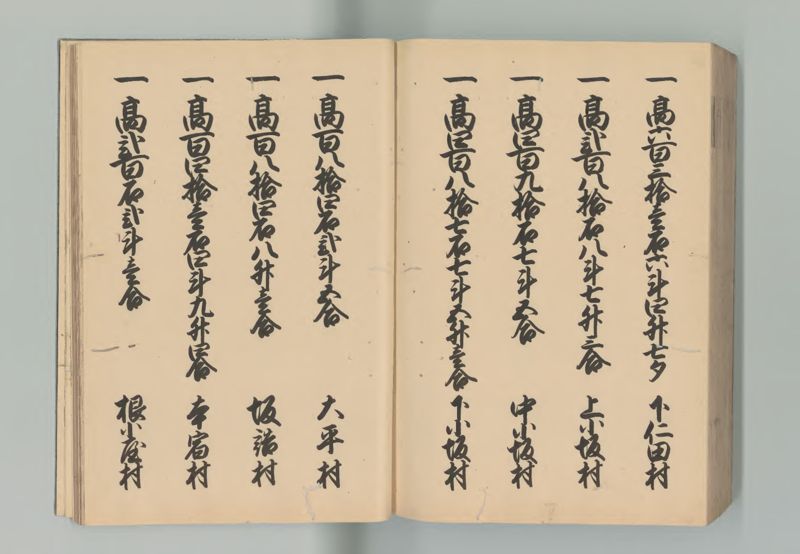 一高六百三拾壱石六斗四升七夕 下仁田村
一高弐百八拾石八斗七升三合 上小坂村
一高四百九拾石七斗五合 中小坂村
一高四百八拾七石七斗五升壱合 下小坂村
一高百八拾四石弐斗五合 大平村
一高百八拾四石八升壱合 坂詰村
一高百四拾壱石四斗九升四合 本宿村
一高弐百石弐斗壱合 根小屋村